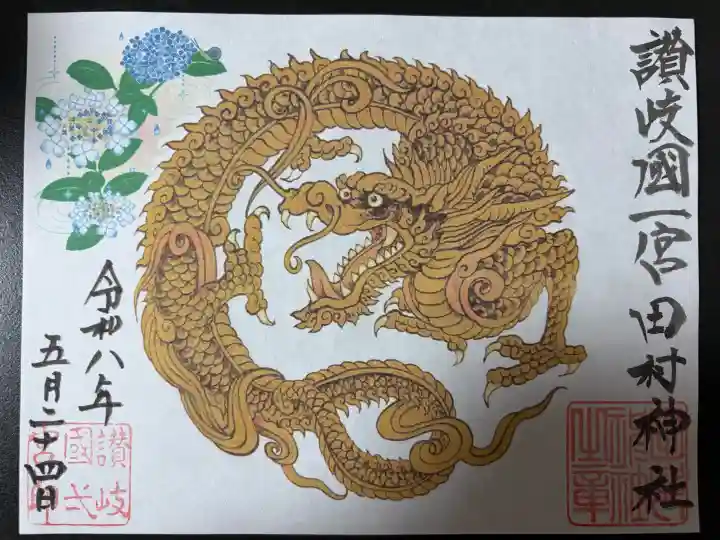 讃岐國一宮田村神社
令和八年
五月二十四日
讃岐
國弍